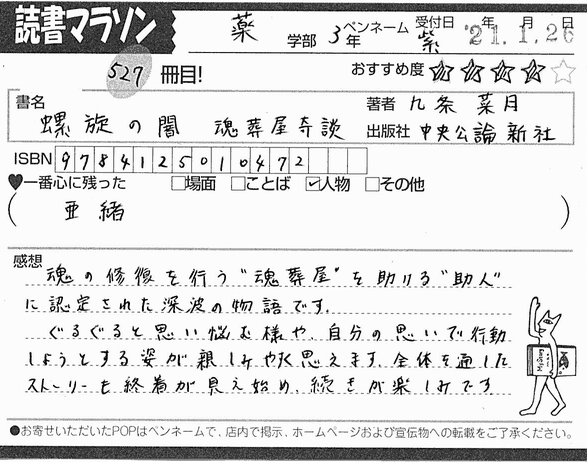 読書マラソン
薬 学部 3年 ペンネーム 紫 受付日 '21.1.26 年 月 日
527 冊目!
おすすめ度 ★★★★☆
書名 螺旋の闇 魂葬屋奇談
著者 九条菜月
出版社 中央公論新社
ISBN 9784125010472
♥一番心に残った □場面 □ことば ☑人物 □その他
( 亜緒 )
感想
魂の修復を行う"魂葬屋"を助ける"助人"
に認定された深波の物語です。
ぐるぐると思い悩む様や、自分の思いで行動
しようとする姿が親しみやすく思えます。全体を通した
ストーリーも終着が見え始め、続きが楽しみです。
●お寄せいただいたPOPはペンネームで、店内で掲示、ホームページおよび宣伝物への転載をご了承ください。